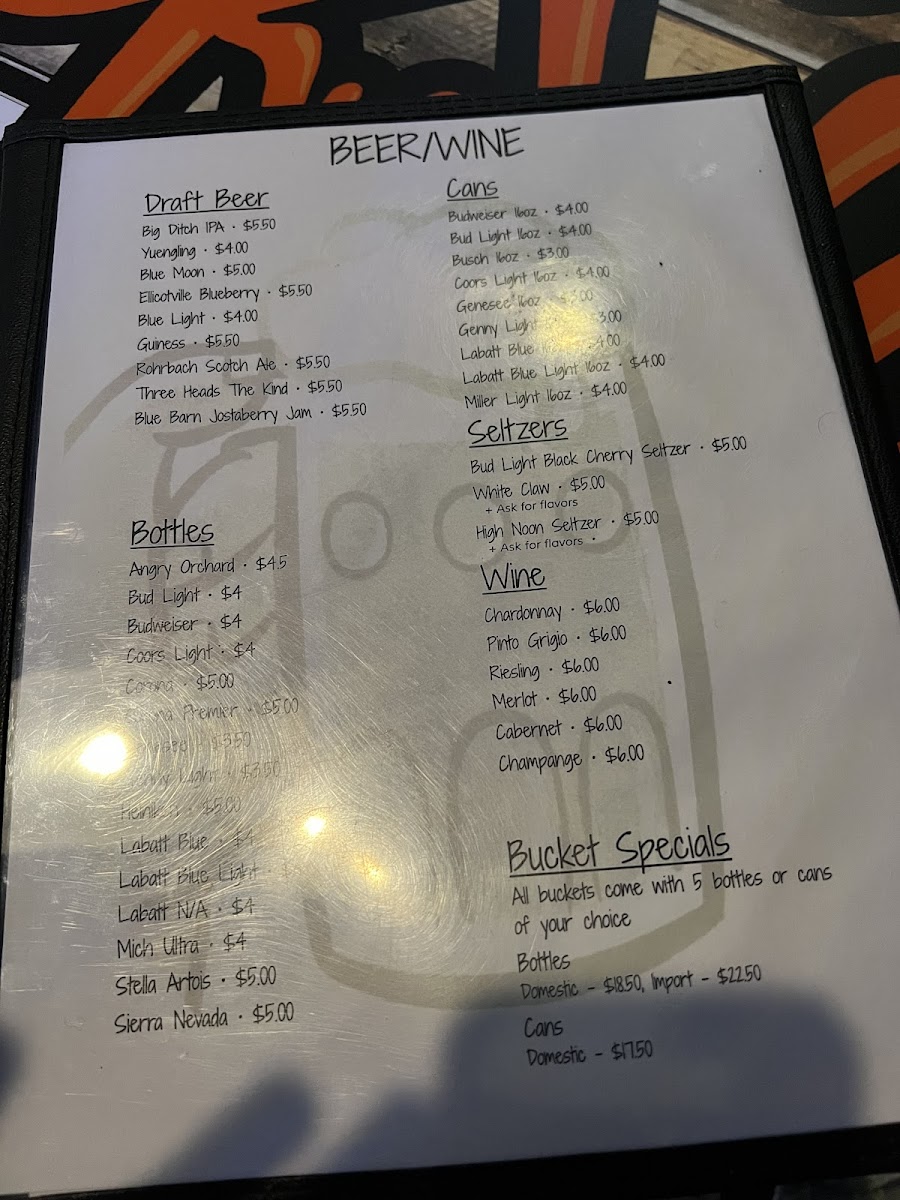 BEER/WINE
Draft Beer
Big Ditch IPA · $5.50
Yuengling · $4.00
Blue Moon · $5.00
Ellicotville Blueberry · $5.50
Blue Light · $4.00
Guiness · $5.50
Rohrbach Scotch Ale · $5.50
Three Heads The Kind · $5.50
Blue Barn Jostaberry Jam · $5.50
Bottles
Angry Orchard · $4.5
Bud Light · $4
Budweiser · $4
Coors Light · $4
Corona · $5.00
Premier · $5.00
$3.50
Light · $3.50
$5.00
Labatt Blue · $4
Labatt Blue Light ·
Labatt N/A · $4
Mich Ultra · $4
Stella Artois · $5.00
Sierra Nevada · $5.00
Cans
Budweiser 16oz · $4.00
Bud Light 16oz · $4.00
Busch 16oz · $3.00
Coors Light 16oz · $4.00
Genesee 16oz · $3.00
Genny Light 3.00
Labatt Blue 4.00
Labatt Blue Light 16oz · $4.00
Miller Light 16oz · $4.00
Seltzers
Bud Light Black Cherry Seltzer · $5.00
White Claw · $5.00
+ Ask for flavors
High Noon Seltzer · $5.00
+ Ask for flavors
Wine
Chardonnay · $6.00
Pinto Grigio · $6.00
Riesling · $6.00
Merlot · $6.00
Cabernet · $6.00
Champange · $6.00
Bucket Specials
All buckets come with 5 bottles or cans
of your choice
Bottles
Domestic - $18.50, Import - $22.50
Cans
Domestic - $17.50